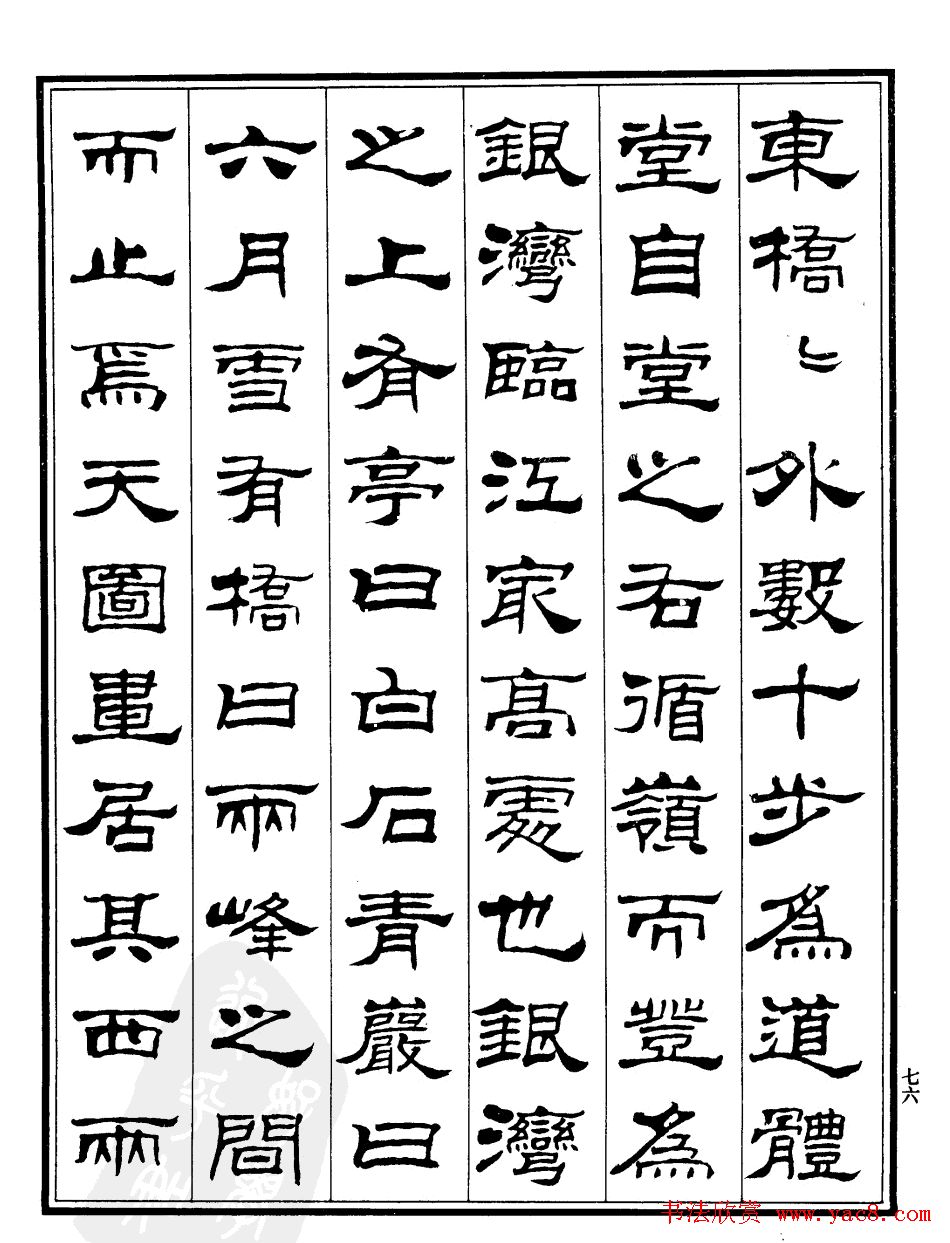 東橋〻外數十步為道體
堂自堂之右循嶺而登為
銀灣臨江冣高處也銀灣
之上有亭曰白石青巖曰
六月雪有橋曰兩峰之間
而止焉天圖畫居其西兩
七六
书法欣赏 www.yac8.com